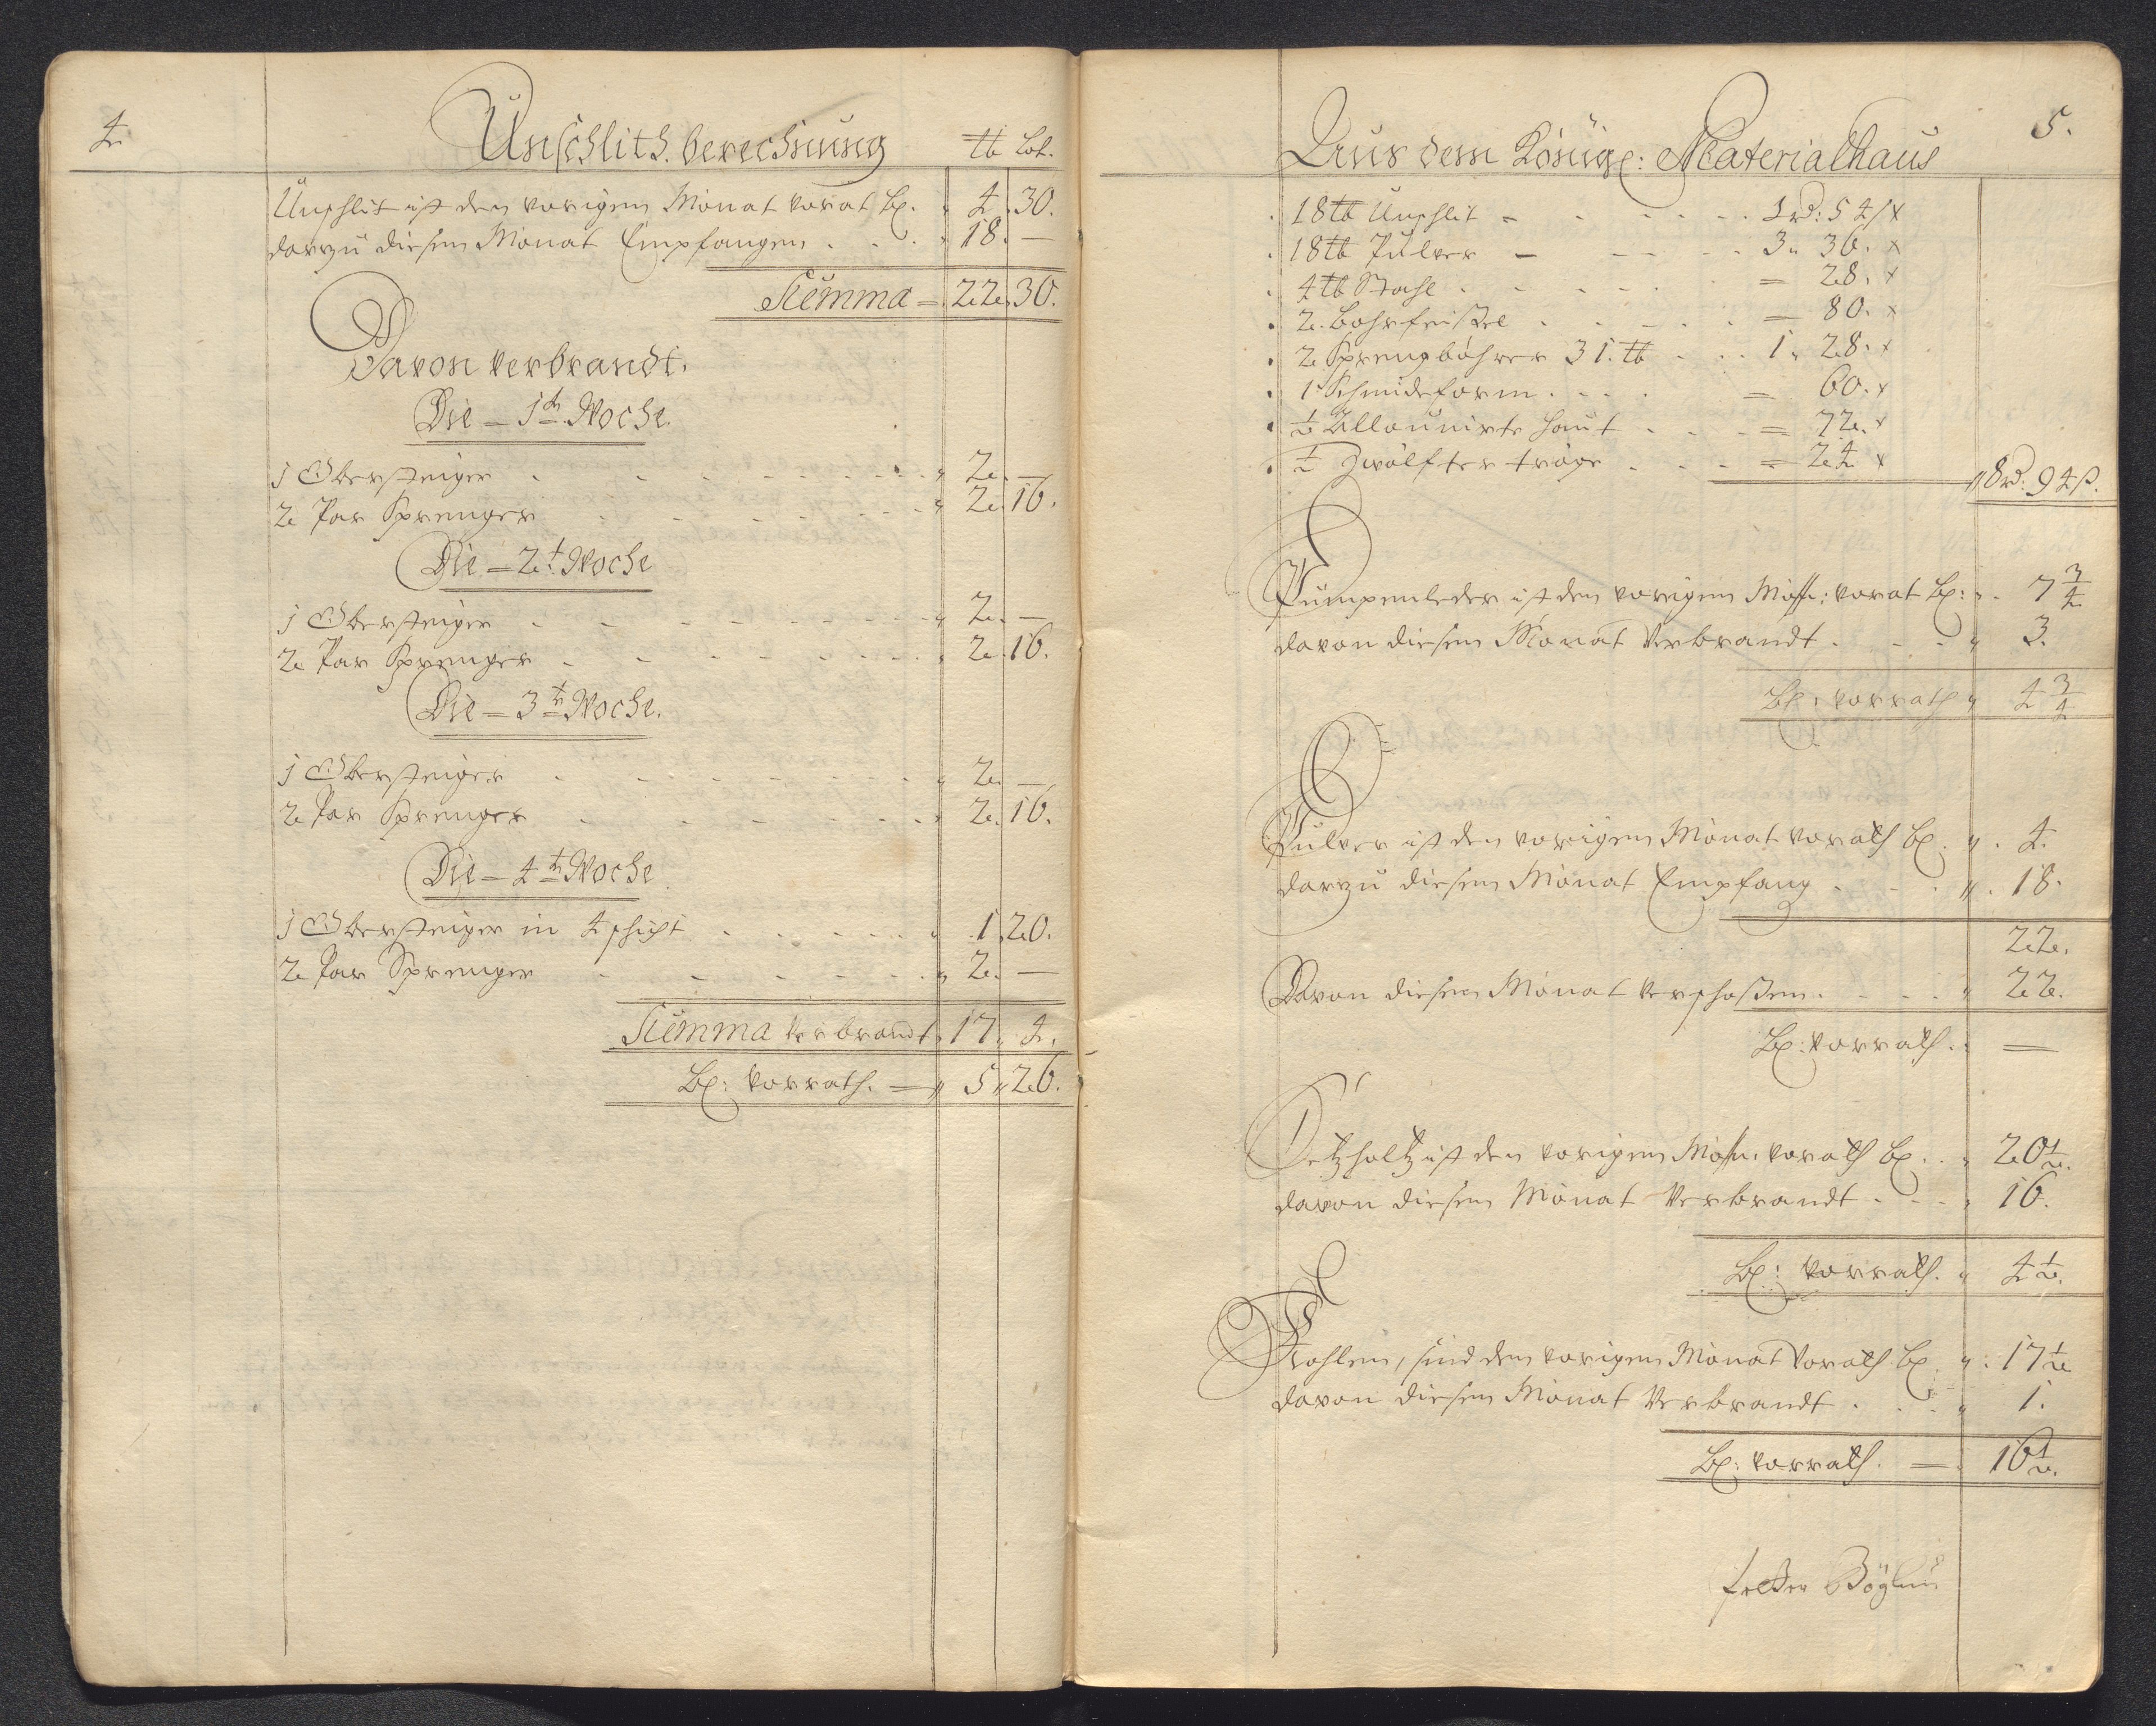 4.
Unschlith. berechnung tb Lot.
Unschlit ist den vorigen Monat vorat bl. 4. 30.
darzu diesen Monat Empfangen . . . 18. —
Summa = 22. 30.
Davon verbrandt.
Die = 1te Woche.
1 Obersteiger . . . . 2. —
2 Par Sprenger . . . . 2. 16.
Die = 2t Woche
1 Obersteiger . . . . 2. —
2 Par Sprenger . . . . 2. 16.
Die = 3te Woche.
1 Obersteiger . . . . 2. —
2 Par Sprenger . . . . 2. 16.
Die = 4te Woche
1 Obersteiger in 4 schicht . . . . 1. 20.
2 Par Sprenger . . . . 2. —
Summa verbrandt 17. 4.
Bl: vorrath. = 5 " 26.
5.
Aus dem Königl: Materialhaus
18 tb Unschlit - . . . 1 rd: 54 ß x
18 tb Pulver - . . . 3 " 36. x
4 tb Stahl . . . = 28. x
2. Bohrfeistel . . . = 80. x
2 Sprengbohrer 31. tb . . . 1 " 28. x
1 Schmideform . . . = 60. x
½ Allounirte haut . . . = 72. x
½ Zwölfter tröge . . . = 24 x
" 8 rd: 94 ß.
Pumpenleder ist den vorigen Mon: vorat bl: . 7 ¾
davon diesen Monat Verbrandt . . . " 3.
Bl: vorrath " 4 ¾
Pulver ist den vorigen Monat vorath bl. " . 4.
darzu diesen Monat Empfang . . . " . 18.
22.
Davon diesen Monat verschoßen . . . " 22.
Bl: vorrath. —
Setzholtz ist den vorigen Mon. vorath bl. . . 20 ½.
davon diesen Monat Verbrandt . . . 16.
Bl: vorrath. " 4 ½.
Kohlen, sind den vorigen Monat Vorath bl. " . 17 ½
davon diesen Monat Verbrandt . . . " 1.
Bl: vorrath. = 16 ½.